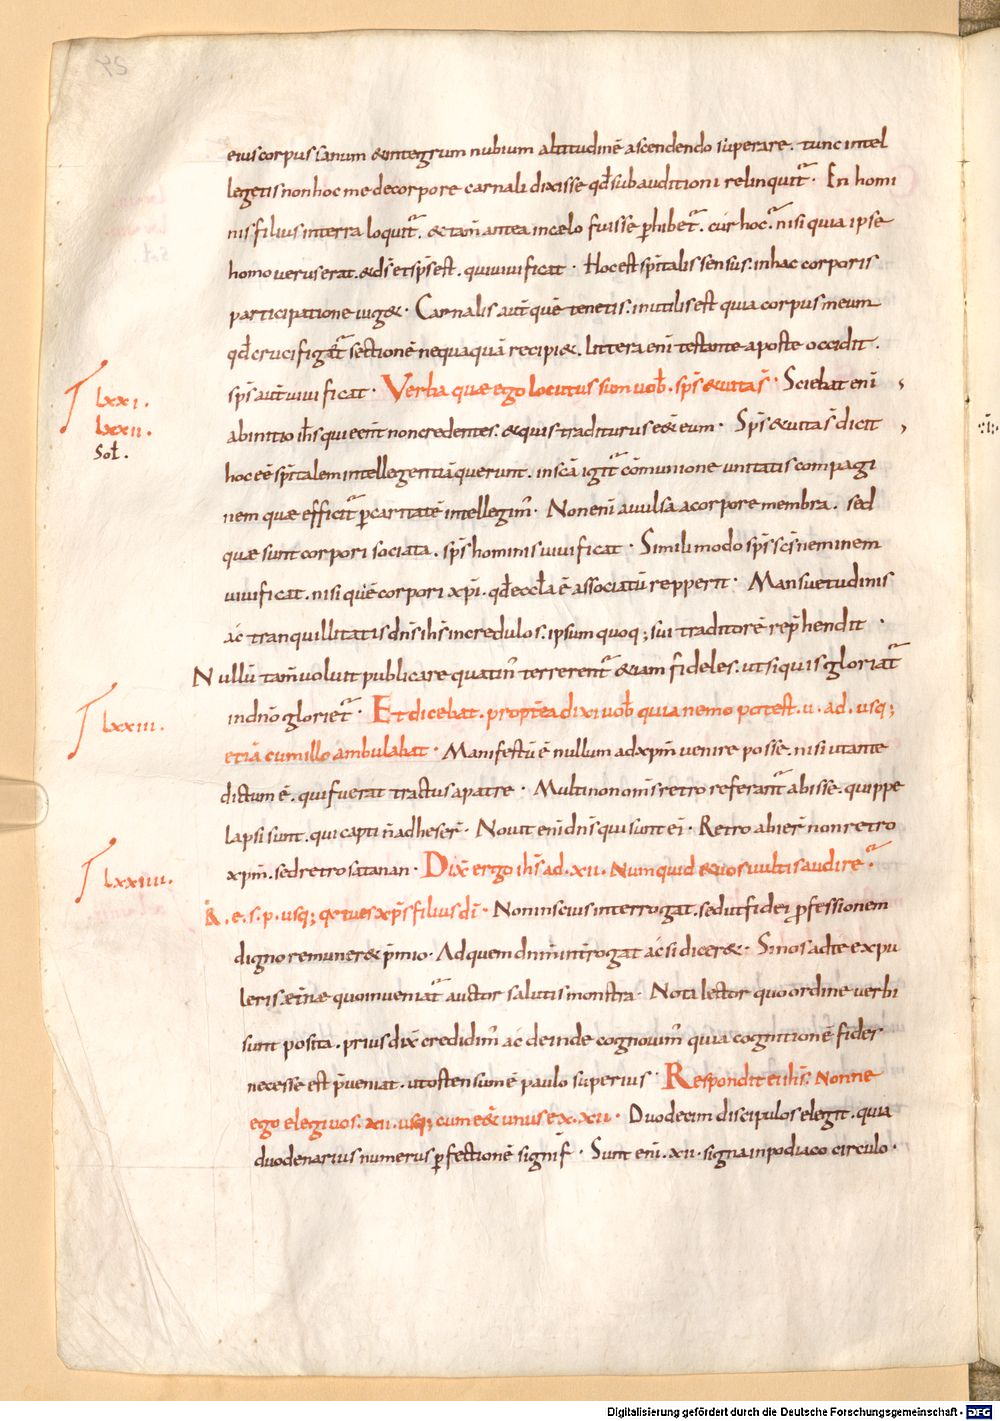 eius corpus sanum &integrum nubium altitudinē ascendendo superare. tunc intel
legetis non hoc me de corpore carnali dixisse qđ subauditioni relinquit᷑. En homi
nis filius in terra loquit᷑. & tam̄ antea in cęlo fuisse ꝑhibet᷑. cur hoc. nisi quia ipse
homo verus erat. & d̄s et sp̄s est. qui vivificat. Hoc est sp̄italis sensus. in hac corporis
participatione vig&. Carnalis aut̄ quē tenetis. inutilis est quia corpus meum
qđ crucifiget᷑ sectionē nequaquā recipi&. Littera enī testante aposto occidit.
sp̄s aut̄ vivificat. Verba quæ ego locutus sum vob̄. sp̄s & vita s̄. Sciebat enī
ab initio ih̄s qui eēnt non credentes. & quis traditurus eēt eum. Sp̄s & vita s̄ dicit
hoc eē sp̄italem intellegentiā querunt. in sc̄a igit᷑ cōmunione unitatis compagi
nem quæ efficit᷑ ꝑ caritatē intellegim̄. Non enī avulsa a corpore membra. sed
quæ sunt corpori sociata. sp̄s hominis vivificat. Simili modo sp̄s sc̄s neminem
vivificat. nisi quē corpori xp̄i. qđ eccl̄a ē associatū repperit. Mansuetudinis
ac tranquillitatis dn̄s ih̄s incredulos. ipsum quoq; sui traditorē rep̄hendit.
Nullū tam̄ voluit publicare quatin̄ terrerent᷑ &iam fideles. ut si quis gloriat᷑
in dn̄o gloriet᷑. Et dicebat. propterea dixi vob̄ quia nemo potest. v. ad. usq;
etiā cum illo ambulabat. Manifestū ē nullum ad xp̄m venire posse. nisi ut ante
dictum ē. qui fuerat tractus a patre. Multi non om̄s retro referant᷑ abisse. quippe
lapsi sunt. qui capti n̄ adheser̄. Novit enī dn̄s qui sunt ei. Retro abier̄ non retro
xp̄m. sed retro satanan. Dix̄ ergo ih̄s ad. xii. Numquid & vos vultis audire.
R. e. s. p. usq; q̄ tu es xp̄s filius dī. Non inscius interrogat. sed ut fidei ꝓfessionem
digno remuner& p̄mio. Ad quem dn̄m introgat ac si dicer&. Si nos ad te expu
leris æt̄næ quo inveniat᷑ auctor salutis monstra. Nota lector quo ordine verbi
sunt posita. prius dix̄ credidim̄ ac deinde cognovim̄ quia cognitionē fides
necesse est p̄veniat. ut ostensum ē paulo superius. Respondit eī ih̄s. Nonne
ego elegi vos. xii. usq; cum eēt unus ex. xii. Duodecim discipulos elegit. quia
duodenarius numerus ꝑfectionē signif̄. Sunt enī. xii. signa in zodiaco circulo.
lxxi.
lxxii.
Sol̄.
lxxiii.
lxxiiii.
Digitalisierung gefördert durch die Deutsche Forschungsgemeinschaft - DFG